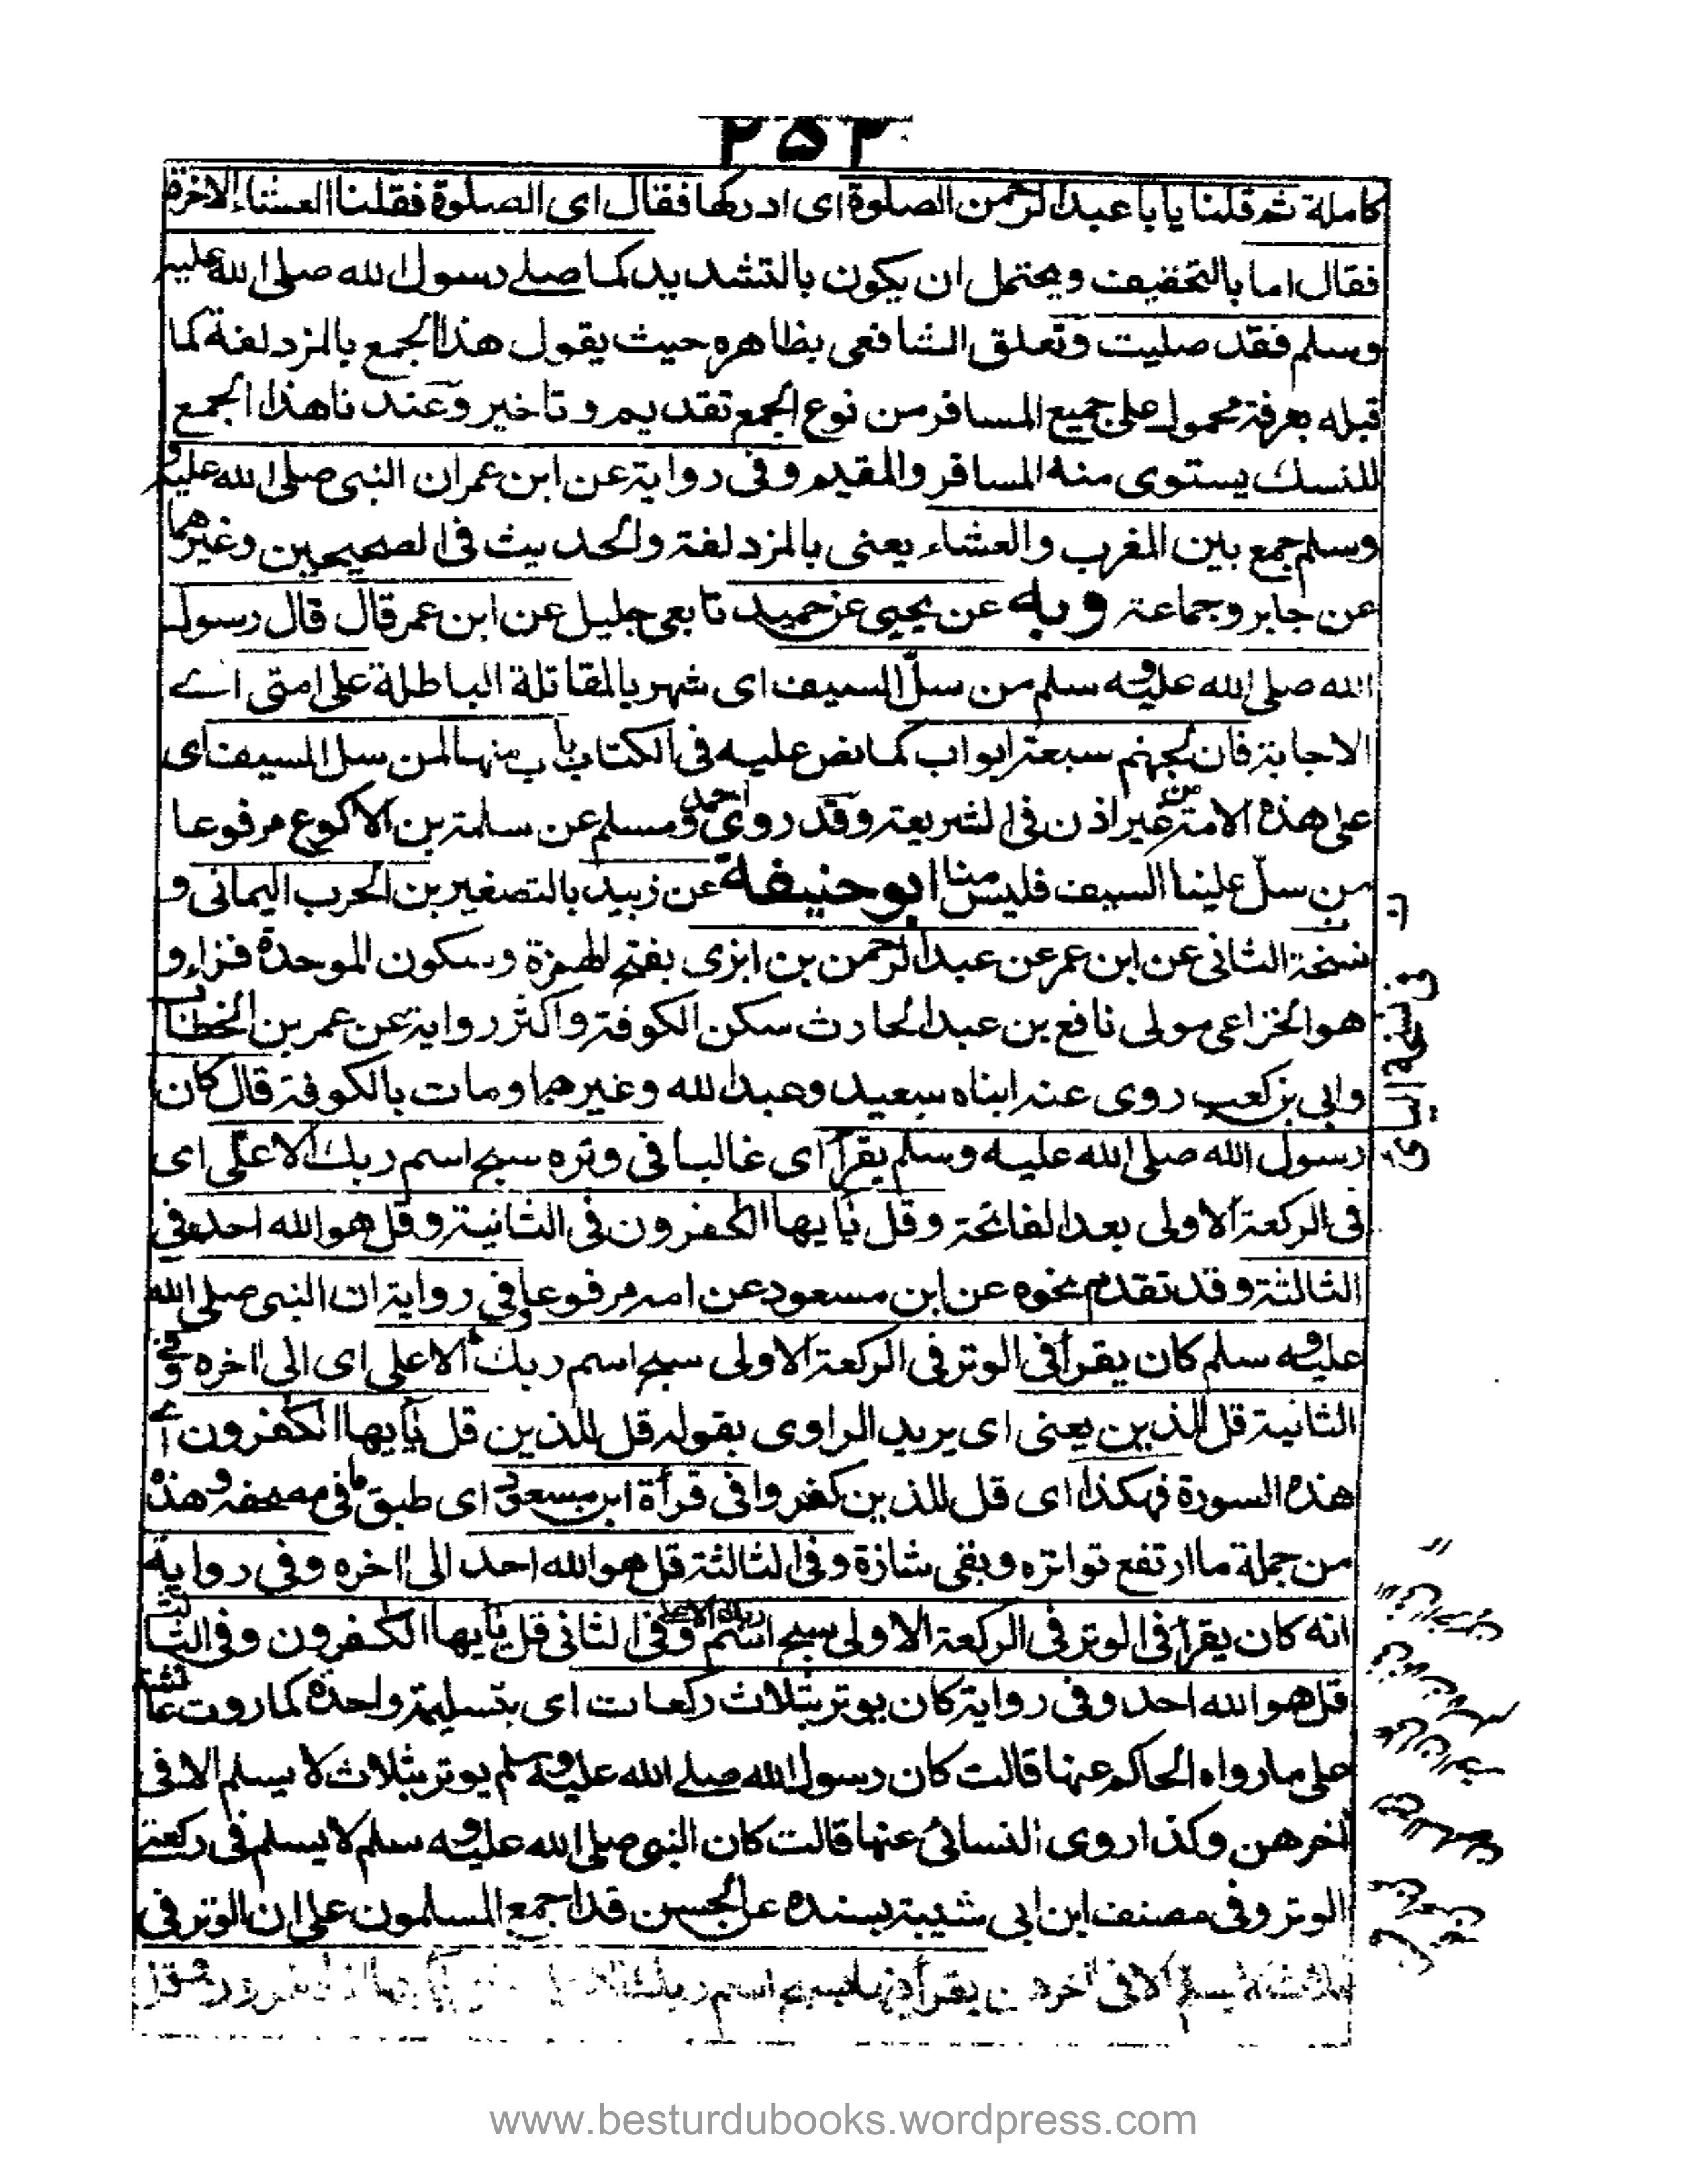 ٢٥٣
كاملة ثم قلنا يا با عبد الرحمن الصلوة اى ادركها فقال اى الصلوة فقلنا العشاء الاخرة
فقال اما بالتخفيف ويحتمل ان يكون بالتشديد كما صلے رسول الله صلى الله عليه
وسلم فقد صليت وتعلق الشافعى بظاهره حيث يقول هذا الجمع بالمزدلفة كما
قبله بعرفة محمول على جميع المسافر من نوع الجمع تقديم و تاخير وعند نا هذا الجمع
للنسك يستوى منه المسافر والمقيم وفى رواية عن ابن عمران النبى صلى الله عليه و
وسلم جمع بين المغرب والعشاء يعنى بالمزدلفة والحديث فى الصحيحين وغيرهما
عن جابر وجماعة وبه عن يحيى عن حميد تابعى جليل عن ابن عمر قال قال رسول
الله صلى الله عليه و سلم من سلّ السيف اى شهر بالمقاتلة الباطلة على امتى اے
الاجابة فان لجهنم سبعة ابواب كما نص عليه فى الكتاب باب منها لمن سل السيف اى
على هذه الامة من غير اذن فى الشريعة وقد روى احمد ومسلم عن سلمة بن الاكوع مرفوعا
من سلّ علينا السيف فليس منا ابو حنيفة عن زبيد بالتصغير بن الحرب اليمانى و
نسخة الثانى عن ابن عمر عن عبد الرحمن بن ابزى بفتح الهمزة وسكون الموحدة فزاء و
هو الخزاعى مولى نافع بن عبد الحارث سكن الكوفة واكثر رواية عن عمر بن الخطاب
وابى بن كعب روى عنه ابناه سعيد وعبد الله وغيرهما ومات بالكوفة قال كان
رسول الله صلى الله عليه وسلم يقرأ اى غالبا فى وتره سبح اسم ربك الاعلى اى
فى الركعة الاولى بعد الفاتحة وقل يٰايها الكٰفرون فى الثانية وقل هو الله احد فى
الثالثة وقد تقدم نحوه عن ابن مسعود عن امه مرفوعا وفى رواية ان النبى صلى الله
عليه و سلم كان يقرأ فى الوتر فى الركعة الاولى سبح اسم ربك الاعلى اى الى اخره وفى
الثانية قل للذين يعنى اى يريد الراوى بقوله قل للذين قل يٰايها الكٰفرون اے
هذه السورة فهكذا اى قل للذين كفروا فى قرأة ابن مسعود اى طبق ما فى مصحفه وهذه
من جملة ما ارتفع تواتره وبقى شاذة وفى الثالثة قل هو الله احد الى اخره وفى رواية
انه كان يقرأ فى الوتر فى الركعة الاولى سبح اسم ربك الاعلى وفى الثانى قل يٰايها الكٰفرون وفى الثالثة
قل هو الله احد وفى رواية كان يوتر بثلاث ركعات اى بتسليمة واحدة كما روت عائشة
على ما رواه الحاكم عنها قالت كان رسول الله صلے الله عليه وسلم يوتر بثلاث لا يسلم الا فى
اخرهن وكذا روى النسائى عنها قالت كان النبى صلى الله عليه و سلم لا يسلم فى ركعتے
الوتر وفى مصنف ابن ابى شيبة بسنده عن الحسن قد اجمع المسلمون على ان الوتر فى
لا يسلم الا فى اخرهن يقرأ فيها سبح اسم ربك
فى نسخة اليامى
www.besturdubooks.wordpress.com